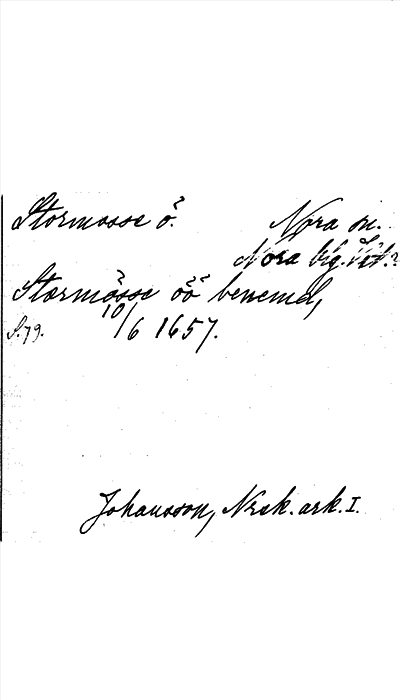 Stormosse ö.
Nora sn.
Nora bg. Vst.?
Stormösse öö benemd,
S. 79. 10/6 1657.
Johansson, Nrak. ark. I.